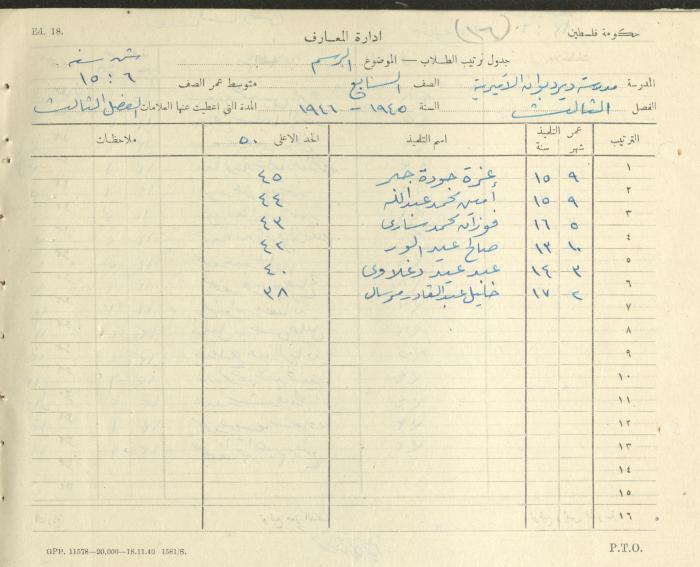 Ed. 18.
حكومة فلسطين
(٣٦)
ادارة المعارف
جدول ترتيب الطلاب — الموضوع الرسم
شهر سنة
المدرسة مدرسة دير ديوان الأميرية الصف السابع متوسط عمر الصف ٦ : ١٥
الفصل الثالث السنة ١٩٤٥ – ١٩٤٦ المدة التي اعطيت عنها العلامات الفصل الثالث
الترتيب عمر التلميذ شهر سنة اسم التلميذ الحد الاعلى ٥٠ ملاحظات
١ ٩ ١٥ عزة جودة جبر ٤٥
٢ ٩ ١٥ أمين محمد عبدالله ٤٤
٣ ٥ ١٦ فوزان محمد ٤٣
٤ ١٠ ١٣ صالح عبد ٤٢
٥ ٣ ١٤ عبد عيد دغلاوي ٤٠
٦ ٢ ١٧ خليل عبدالقادر مرسال ٣٨
٧
٨
٩
١٠
١١
١٢
١٣
١٤
١٥
١٦
GPP. 11578—20,000—18.11.40 1581/S.
P.T.O.